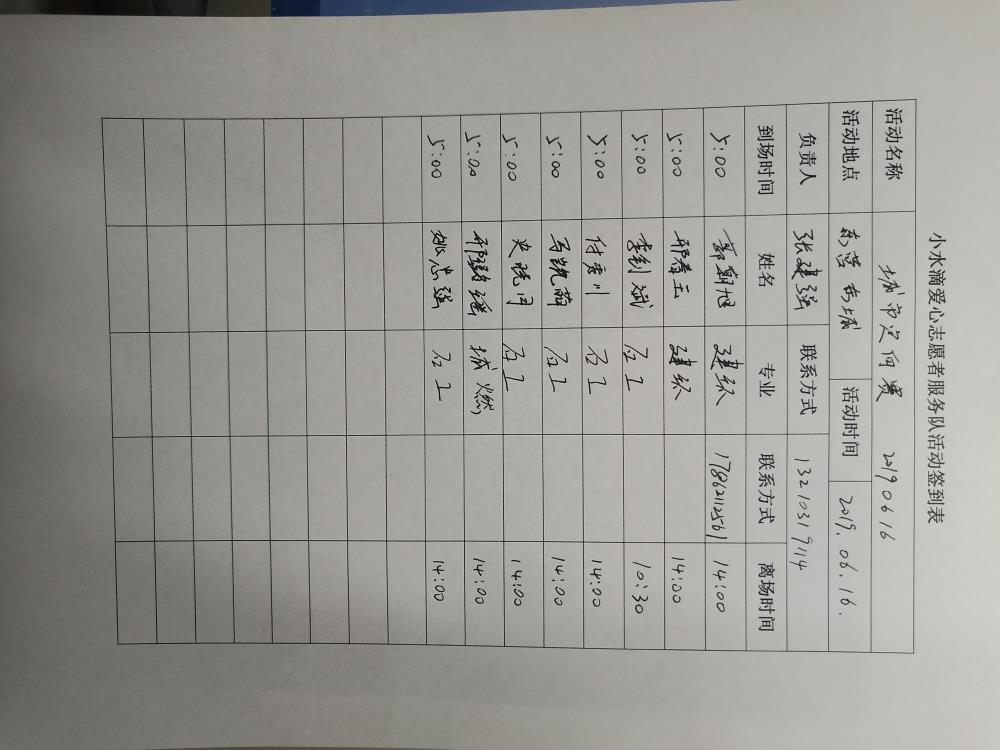 小水滴爱心志愿者服务队活动签到表
活动名称 城市定向赛 20190616
活动地点 东营东城 活动时间 2019.06.16.
负责人 张建强 联系方式 13210319114
到场时间 姓名 专业 联系方式 离场时间
5:00 郭朝旭 建环 17862112561 14:00
5:00 邢春玉 建环 14:00
5:00 李钊斌 石工 10:30
5:00 付秀川 石工 14:00
5:00 马凯萌 石工 14:00
5:00 史晓同 石工 14:00
5:00 城燃 14:00
5:00 姚忠强 石工 14:00